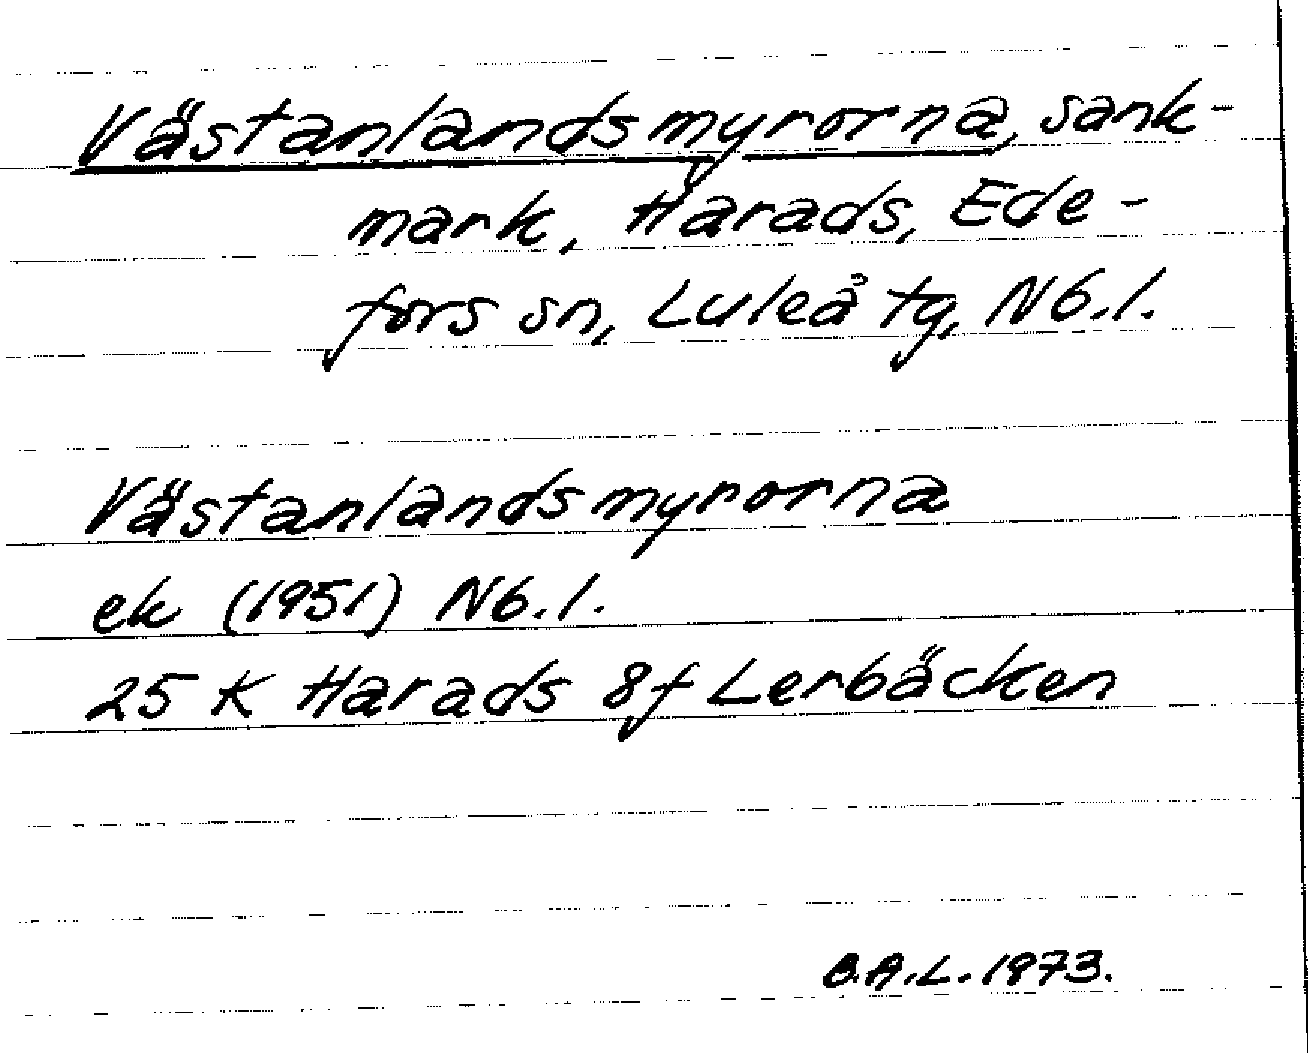 Västanlandsmyrorna, sank-
mark, Harads, Ede-
fors sn, Luleå tg, Nb.l.
Västanlandsmyrorna
ek (1951) Nb.l.
25 K Harads 8f Lerbäcken
B.A.L. 1973.